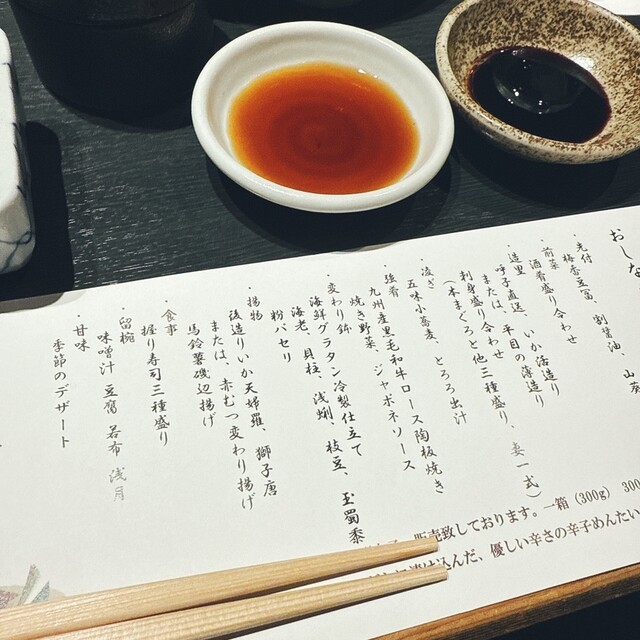 おしな
・先付
梅香豆冨、割醤油、山葵
・前菜
酒肴盛り合わせ
・造里
呼子直送、いか活造り
または、平目の薄造り
刺身盛り合わせ
(本まぐろと他三種盛り、妻一式)
・凌ぎ
五味小蕎麦、とろろ出汁
・強肴
九州産黒毛和牛ロース陶板焼き
焼き野菜、ジャポネソース
・変わり鉢
海鮮グラタン冷製仕立て
海老、貝柱、浅蜊、枝豆、玉蜀黍
粉パセリ
・揚物
後造りいか天婦羅、獅子唐
または、赤むつ変わり揚げ
馬鈴薯磯辺揚げ
・食事
握り寿司三種盛り
・留椀
味噌汁 豆腐 若布 浅月
・甘味
季節のデザート
込んだ、優しい辛さの辛子めんたい
販売致しております。一箱(300g) 300